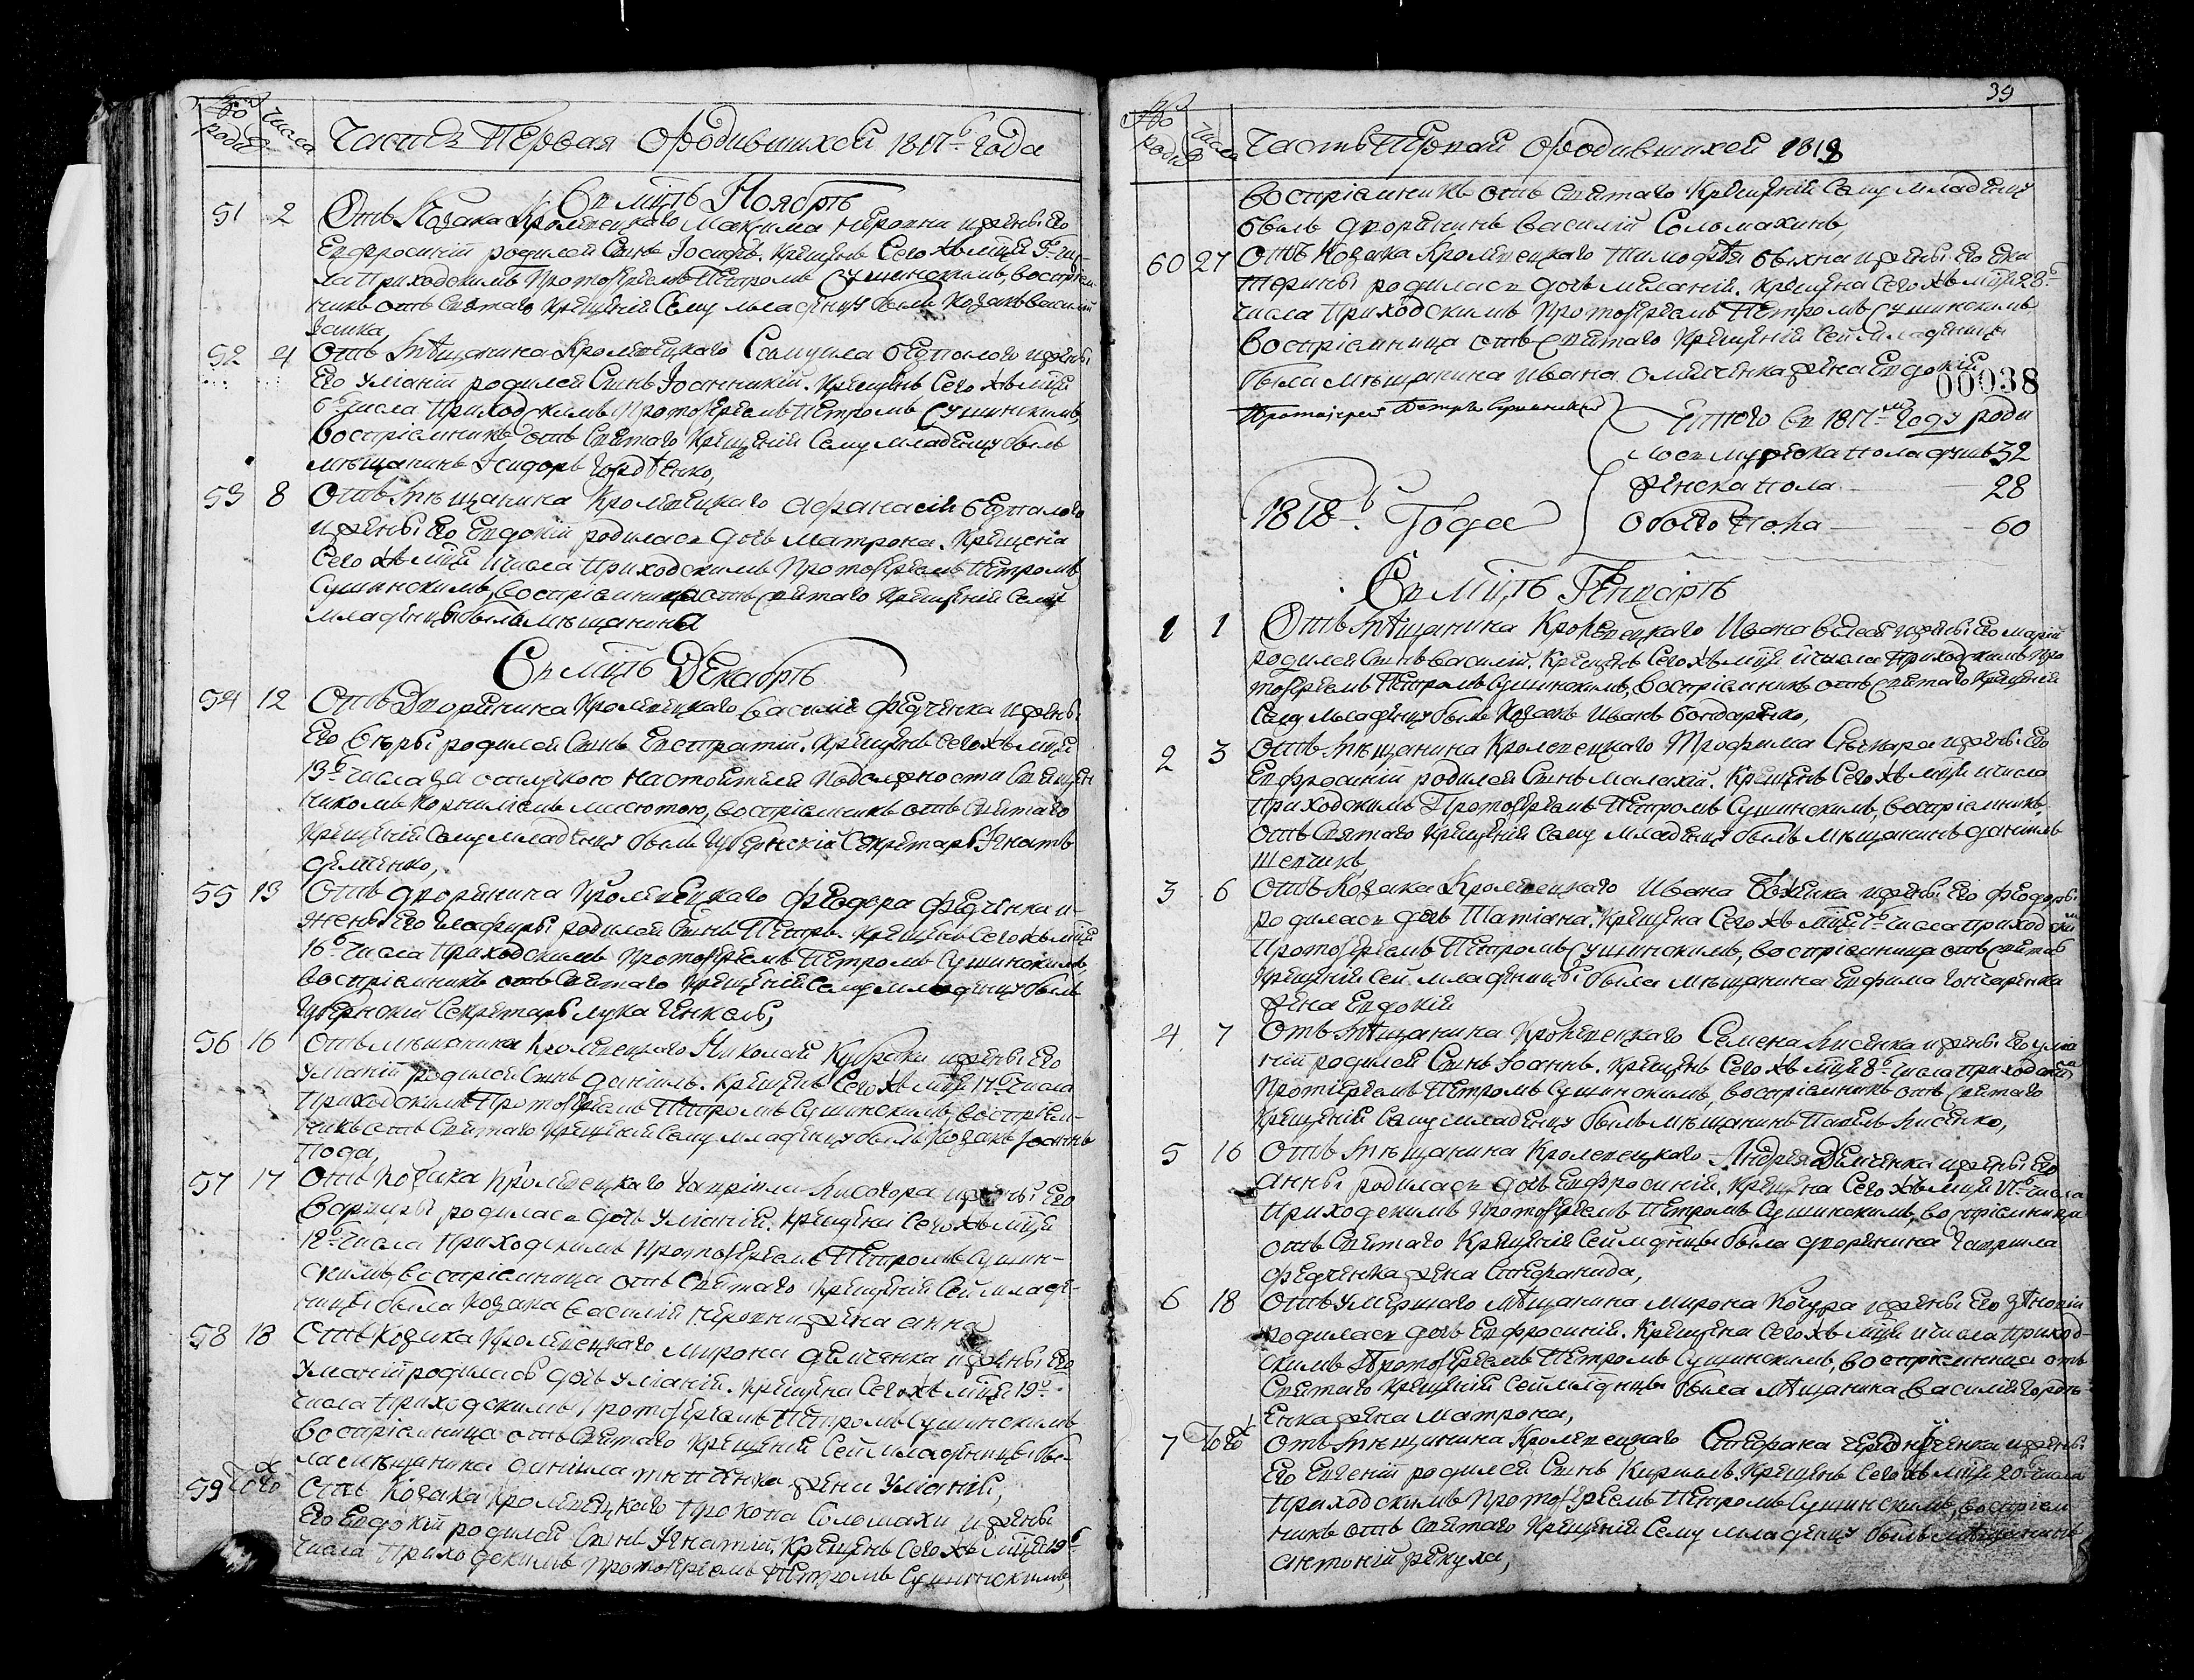 Число родив
Числа
Часть Первая о родившихся 1817го Года
Въ мцѣ Ноябрѣ
51 2 Отъ Козака Кролевецкаго Максима и жены Его
Евфросиніи родился Сынъ Іосифъ. Крещенъ Сего хъ мцѣ
ла приходскимъ Протоіереемъ Петромъ Сушинскимъ, воспріем-
никъ отъ святаго Крещенія Сему младенцу былъ Козакъ Василій
Заика
52 4 Отъ мѣщанина Кролевецкаго Самуила Безпалого и жены
Его Уліаніи родился Сынъ Іоанникій. Крещенъ Сего хъ мцѣ
6го числа приходскимъ Протоіереемъ Петромъ Сушинскимъ,
воспріемникъ отъ святаго Крещенія Сему младенцу былъ
мѣщанинъ Исидоръ Гордѣенко,
53 8 Отъ мѣщанина Кролевецкаго Афанасія Безпалого
и жены Его Евдокіи родилась дочь Матрона. Крещена
Сего хъ мцѣ и числа приходскимъ Протоіереемъ Петромъ
Сушинскимъ, воспріемница отъ святаго Крещенія Сей
младенцы была мѣщанина
Въ мцѣ Декабрѣ
54 12 Отъ Дворянина Кролевецкаго Василія Федченка и жены
Его родился Сынъ Евстратій. Крещенъ Сего хъ мцѣ
13го числа за отлучкою настоятеля по должности священ
никомъ Корниліемъ воспріемникъ отъ святаго
Крещенія Сему младенцу былъ Губернскій Секретарь Игнатъ
Демченко,
55 13 Отъ дворянина Кролевецкаго Феодора Федченка и
жены Его Глафиры родился Сынъ Петръ. Крещенъ Сего хъ мцѣ
16го числа приходскимъ Протоіереемъ Петромъ Сушинскимъ,
воспріемникъ отъ святаго Крещенія Сему младенцу былъ
Губернскій Секретарь Лука
56 16 Отъ мѣщанина Кролевецкаго Николая и жены Его
Уліаніи родился Сынъ Даніилъ. Крещенъ Сего хъ мцѣ 17го числа
приходскимъ Протоіереемъ Петромъ Сушинскимъ, воспріем-
никъ отъ святаго Крещенія Сему младенцу былъ Козакъ Іоаннъ
57 17 Отъ Козака Кролевецкаго Гавріила Лисогора и жены Его
Варвары родилась дочь Уліанія. Крещена Сего хъ мцѣ
18го числа приходскимъ Протоіереемъ Петромъ Сушин-
скимъ, воспріемница отъ святаго Крещенія Сей младе-
нцы была Козака Василія жена Анна
58 18 Отъ Козака Кролевецкаго Мирона Демченка и жены Его
Уліаніи родилась дочь Уліанія. Крещена Сего хъ мцѣ 19го
числа приходскимъ Протоіереемъ Петромъ Сушинскимъ
воспріемница отъ святаго Крещенія Сей младенцы бы-
ла мѣщанина Даніила жена Уліанія,
59 Того Отъ Козака Кролевецкаго Прокопа Соломахи и жены
Его Евдокіи родился Сынъ Игнатій. Крещенъ Сего хъ мцѣ 19го
числа приходскимъ Протоіереемъ Петромъ Сушинскимъ,
39
Число родив
Числа
Часть Первая о родившихся 1818
воспріемникъ отъ святаго Крещенія Сему младенцу
былъ дворянинъ Василій Соломахинъ,
60 27 Отъ Козака Кролевецкаго Тимофея и жены Его Ека
терины родилась дочь Меланія. Крещена Сего хъ мцѣ 28го
числа приходскимъ Протоіереемъ Петромъ Сушинскимъ
воспріемница отъ святаго Крещенія Сей младенцы
была мѣщанина Ивана Омелченка жена Евдокія
00038
Протоіерей Петръ Сушинскій
Итого въ 1817мъ Году роди
лось мужеска пола душъ 32
женска пола 28
обоего пола 60
1818го Года
Въ мцѣ Генварѣ
1 1 Отъ мѣщанина Кролевецкаго Ивана и жены Его Маріи
родился Сынъ Василій. Крещенъ Сего хъ мцѣ и числа приходскимъ Про
тоіереемъ Петромъ Сушинскимъ, воспріемникъ отъ святаго Крещенія
Сему младенцу былъ Козакъ Иванъ Бондаренко,
2 3 Отъ мѣщанина Кролевецкаго Трофима и жены Его
Евфросиніи родился Сынъ Малахій. Крещенъ Сего хъ мцѣ и числа
приходскимъ Протоіереемъ Петромъ Сушинскимъ, воспріемникъ
отъ святаго Крещенія Сему младенцу былъ мѣщанинъ Даніилъ
Шевчикъ
3 6 Отъ Козака Кролевецкаго Ивана и жены Его Феодоры
родилась дочь Татіана. Крещена Сего хъ мцѣ 7го числа приходскимъ
Протоіереемъ Петромъ Сушинскимъ, воспріемница отъ святаго
Крещенія Сей младенцы была мѣщанина Евфима Гончаренка
жена Евдокія
4 7 Отъ мѣщанина Кролевецкаго Семена Лисенка и жены Его Улиа
ніи родился Сынъ Іоаннъ. Крещенъ Сего хъ мцѣ 8го числа приходскимъ
Протіереемъ Петромъ Сушинскимъ, воспріемникъ отъ святаго
Крещенія Сему младенцу былъ мѣщанинъ Павелъ Лисенко,
5 16 Отъ мѣщанина Кролевецкаго Андрея Демченка и жены Его
Анны родилась дочь Евфросинія. Крещена Сего хъ мцѣ 17го числа
приходскимъ Протоіереемъ Петромъ Сушинскимъ, воспріемница
отъ святаго Крещенія Сей мднцы была дворянина Гавриила
Федченка жена Стефанида,
6 18 Отъ умершаго мѣщанина Мирона Коцура и жены Его Зѣновіи
родилась дочь Евфросинія. Крещена Сего хъ мцѣ и числа приход-
скимъ Протоіереемъ Петромъ Сушинскимъ, воспріемница отъ
святаго Крещенія Сей младнцы была мѣщанина Василія Гордѣ-
енка жена Матрона,
7 Того Отъ мѣщанина Кролевецкаго Стефана Чередниченка и жены
Его Евгеніи родился Сынъ Кириллъ. Крещенъ Сего хъ мцѣ 20го числа
приходскимъ Протоіереемъ Петромъ Сушинскимъ, воспріем
никъ отъ святаго Крещенія Сему младенцу былъ мѣщанинъ
Антоній